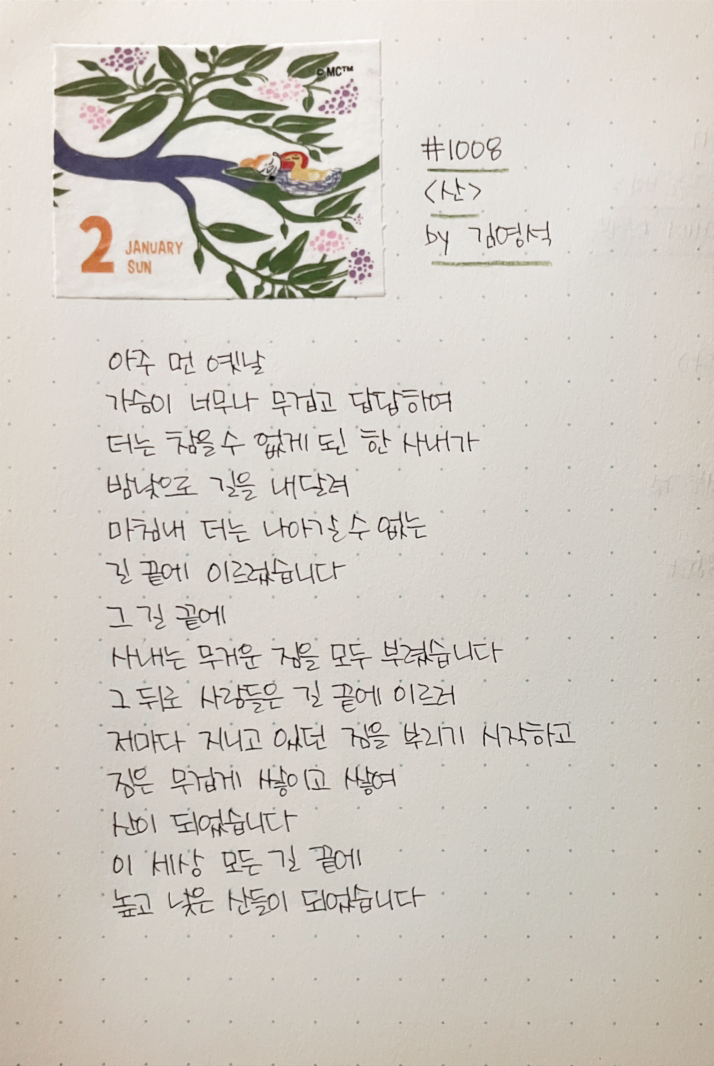 ©MC™
2 JANUARY
SUN
#1008
<산>
by 김영석
아주 먼 옛날
가슴이 너무나 무겁고 답답하여
더는 참을 수 없게 된 한 사내가
밤낮으로 길을 내달려
마침내 더는 나아갈 수 없는
길 끝에 이르렀습니다
그 길 끝에
사내는 무거운 짐을 모두 부렸습니다
그 뒤로 사람들은 길 끝에 이르러
저마다 지니고 있던 짐을 부리기 시작하고
짐은 무겁게 쌓이고 쌓여
산이 되었습니다
이 세상 모든 길 끝에
높고 낮은 산들이 되었습니다